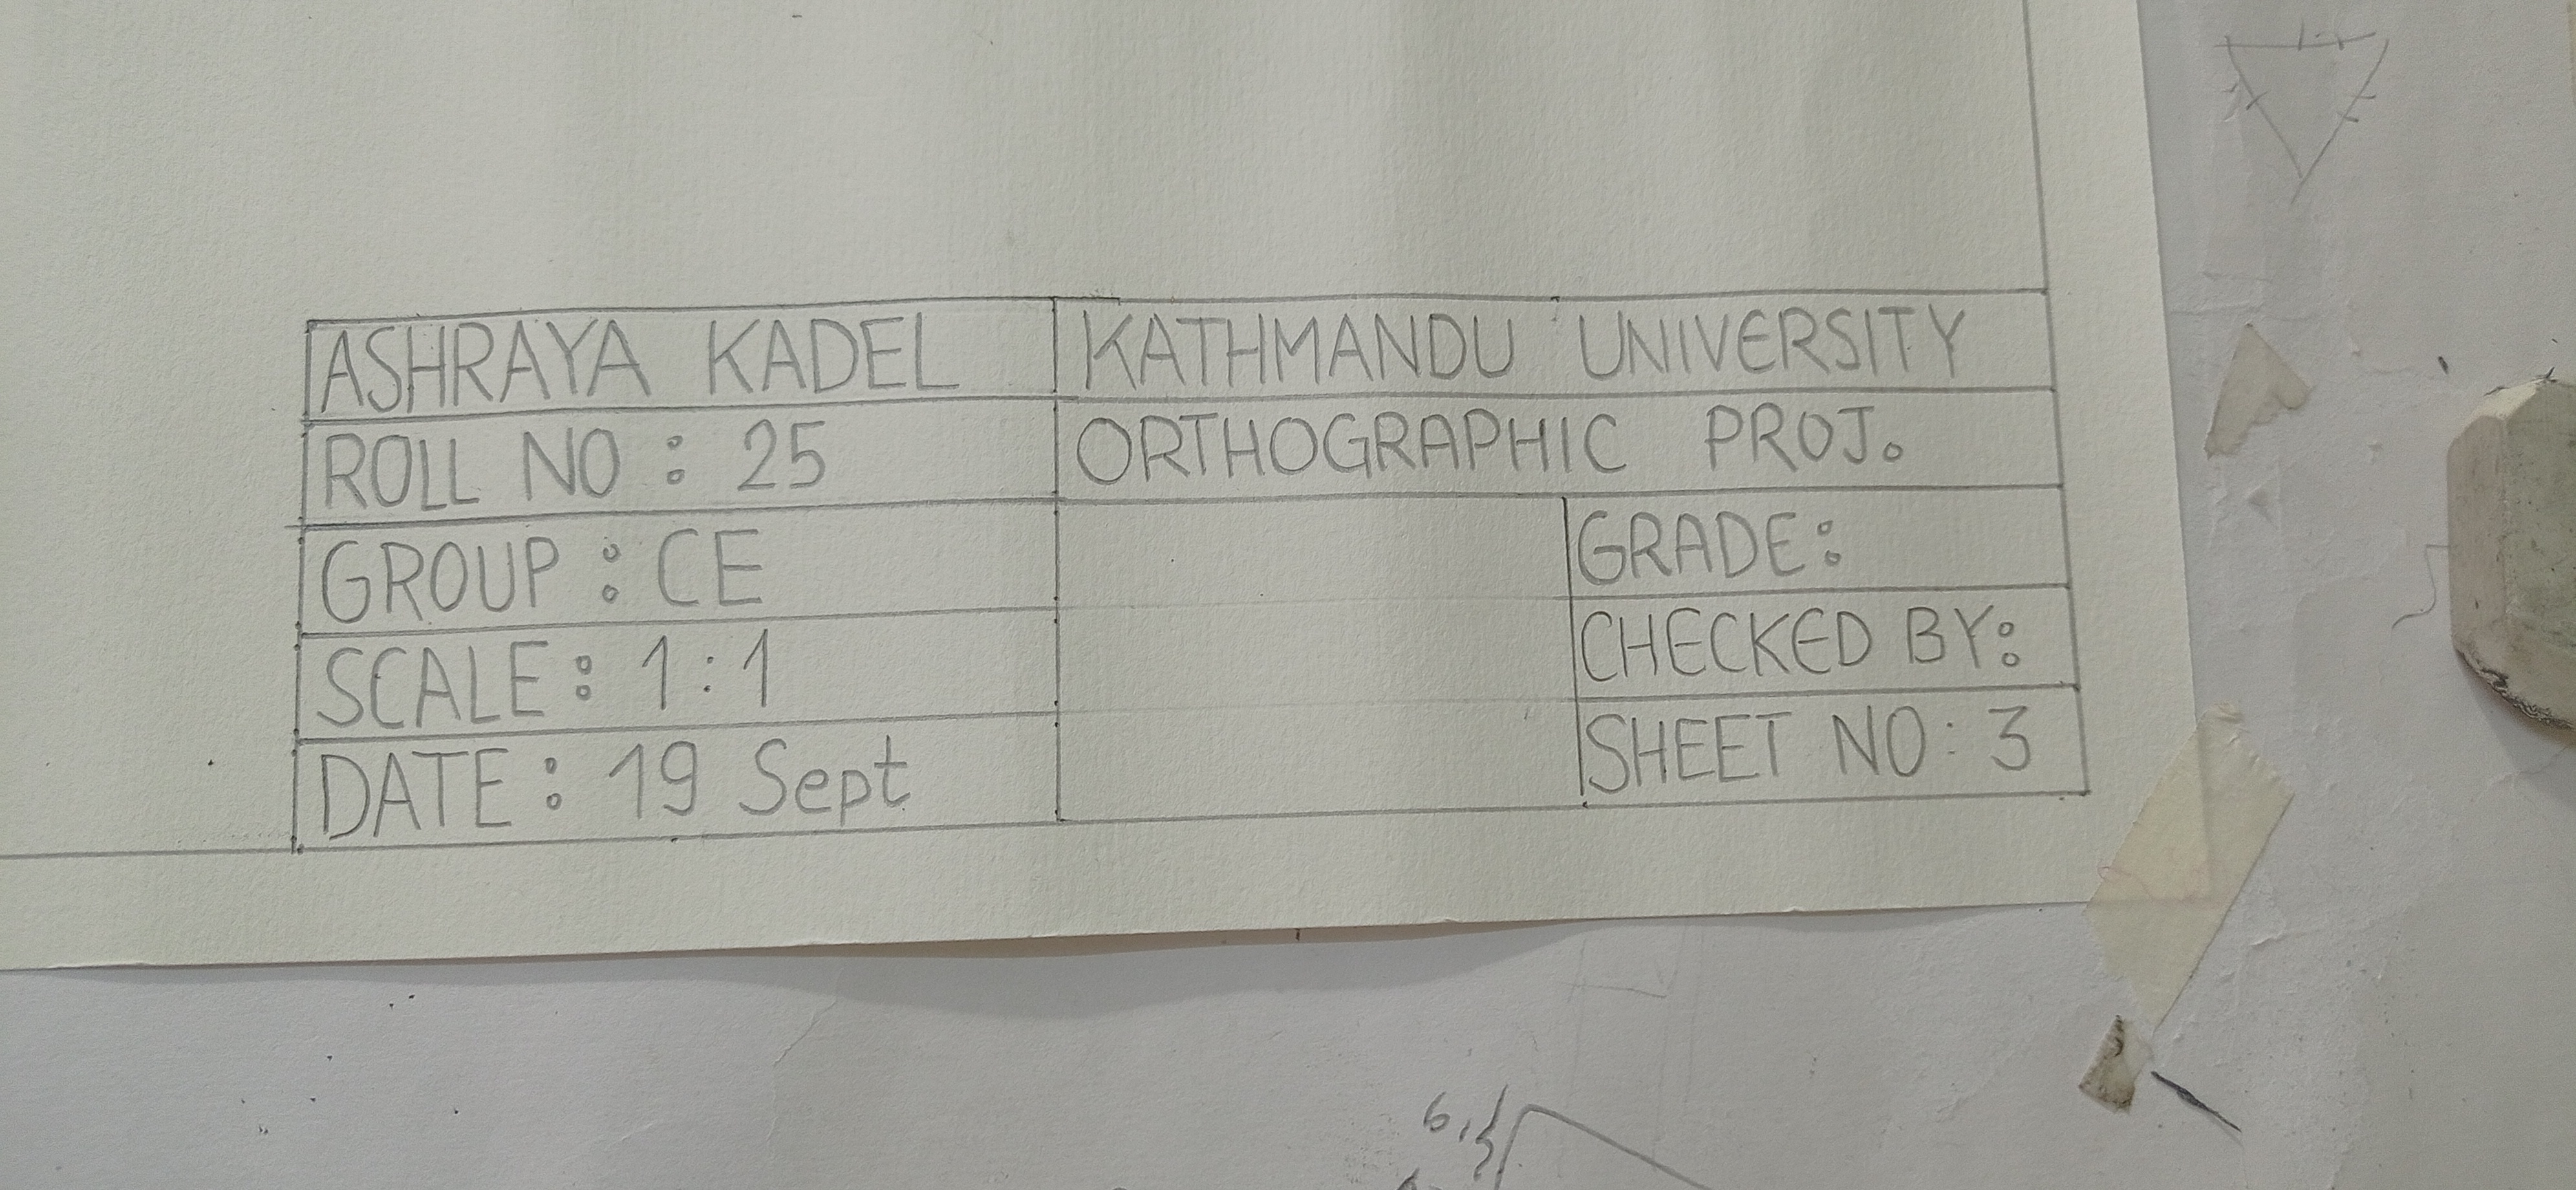 ASHRAYA KADEL
KATHMANDU UNIVERSITY
ROLL NO : 25
ORTHOGRAPHIC PROJ.
GROUP : CE
GRADE:
SCALE: 1:1
CHECKED BY:
DATE: 19 Sept
SHEET NO: 3
6,